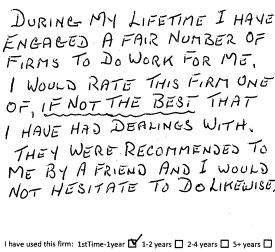 DURING MY LIFETIME I HAVE
ENGAGED A FAIR NUMBER OF
FIRMS TO DO WORK FOR ME.
I WOULD RATE THIS FIRM ONE
OF, IF NOT THE BEST THAT
I HAVE HAD DEALINGS WITH.
THEY WERE RECOMMENDED TO
ME BY A FRIEND AND I WOULD
NOT HESITATE TO DO LIKEWISE.
I have used this firm: 1stTime-1year ☑ 1-2 years ☐ 2-4 years ☐ 5+ years ☐